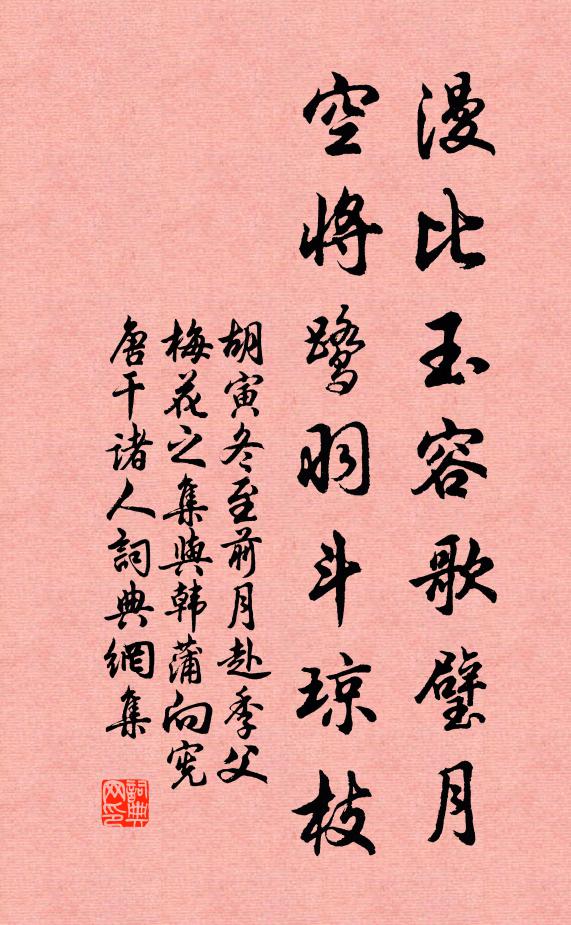 漫比玉容歌璧月
空将鹭羽斗琼枝
胡寅冬至前月赴季父
梅花之集與韩蒲向宪
唐干诸人詞典網集
詞典
网印